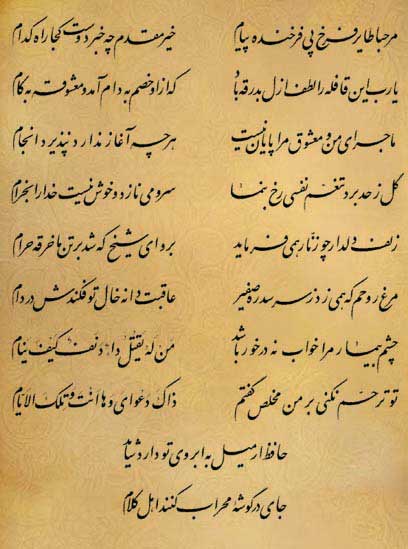 مرحبا طایر فرخ پی فرخنده پیام خیر مقدم چه خبر دوست کجا راه کدام
یارب این قافله را لطف ازل بدرقه باد که ازو خصم به دام آمد و معشوقه به کام
ماجرای من و معشوق مرا پایان نیست هرچه آغاز ندارد نپذیرد انجام
گل ز حد برد تنعم نفسی رخ بنما سرو می نازد و خوش نیست خدا را بخرام
زلف دلدار چو زنار همی فرماید برو ای شیخ که شد بر تن ما خرقه حرام
مرغ روحم که همی زد ز سر سدره صفیر عاقبت دانه خال تو فکندش در دام
چشم بیمار مرا خواب نه درخور باشد من له یقتل داء دنف کیف ینام
تو ترحم نکنی بر من مخلص گفتم ذاک دعوای و ها انت و تلک الایام
حافظ ار میل به ابروی تو دارد شاید
جای در گوشه محراب کنند اهل کلام